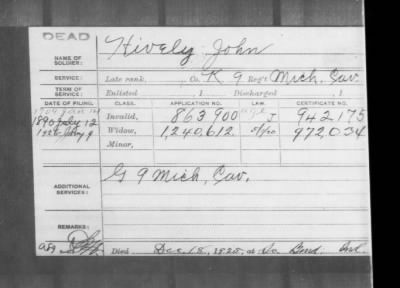 DEAD
NAME OF SOLDIER: Hively John
SERVICE: Late rank, Co. K 9 Reg't Mich. Cav.
TERM OF SERVICE: Enlisted , 1 Discharged , 1
DATE OF FILING. CLASS. APPLICATION NO. LAW. CERTIFICATE NO.
1890 July 12 Invalid, 863900 J 942175
1926 Jany 9 Widow, 1,240,612 972,034
Minor,
ADDITIONAL SERVICES: G 9 Mich. Cav.
REMARKS:
Died Dec. 18, 1925, at So. Bend Ind.